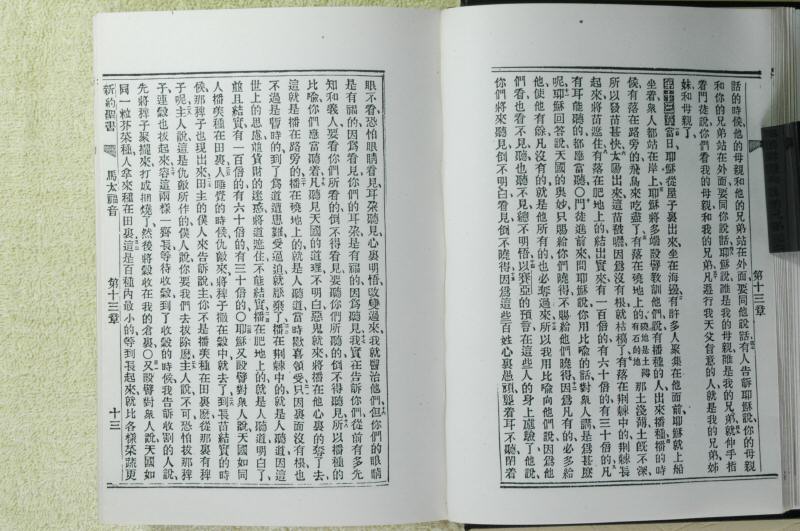 第十三章
話的時候他的母親和他的兄弟站在外面要同他說話有人告訴耶穌說你的母親
和你的兄弟站在外面要同你說話耶穌說誰是我的母親誰是我的兄弟就伸手指
着門徒說你們看我的母親和我的兄弟凡遵行我天父旨意的人就是我的兄弟姊
妹和母親了
第十三章當日耶穌從屋子裏出來坐在海邊有許多人聚集在他面前耶穌就上船
坐着衆人都站在岸上耶穌將多端設譬教訓他們說有播種的人出來播種播的時
候有落在路旁的飛鳥來吃盡了有落在磽地上磽地是土薄有石的地那土淺薄土旣不深
所以發苗甚快太陽出來這苗被曬因爲沒有根就枯槁了有落在荆棘中的荆棘長
起來將苗遮住有落在肥地上的結出實來有一百倍的有六十倍的有三十倍的凡
有耳能聽的都應當聽○門徒進前來問耶穌說你用比喩的話對衆人講是爲甚麽
呢耶穌回答說天國的奥妙只賜給你們曉得不賜給他們曉得因爲凡有的必多給
他使他有餘凡沒有的就是他所有的也必奪過來所以我用比喩向他們說因爲他
們看也看不見聽也聽不見總不明悟以賽亞的預言在這些人的身上應驗了他說
你們將來聽見倒不明白看見倒不曉得因爲這些百姓心裏愚頑塞着耳不聽閉着
眼不看恐怕眼睛看見耳朶聽見心裏明悟改變過來我就醫治他們但你們的眼睛
是有福的因爲看見你們的耳朶是有福的因爲聽見我實在告訴你們從前有多先
知和義人要看你們所看的倒不得看見要聽你們所聽的倒不得聽見所以播種的
比喩你們應當聽着凡聽見天國的道理不明白惡鬼就來將播在他心裏的奪了去
這就是播在路旁的播在磽地上的就是人聽道當時歡喜領受只因裏面沒有根也
不過是暫時的到了爲道遭患難受逼迫就厭棄了播在荆棘中的就是人聽道因這
世上的思慮並貨財的迷惑將道遮住不能結實播在肥地上的就是人聽道明白了
並且結實有一百倍的有六十倍的有三十倍的○耶穌又設譬對衆人說天國如同
人播美種在田裏人睡覺的時候仇敵來將稗子撒在穀中就去了到長苗結實的時
候那稗子也現出來田主的僕人來告訴說主你不是播美種在田裏麽從那裏有稗
子呢主人說這是仇敵所作的僕人說你要我們去拔除麽主人說不可恐怕拔那稗
子連穀也拔起來容這兩樣一齊長等待收穀到了收穀的時候我告訴收割的人說
先將稗子聚攏來打成捆燒了然後將穀收在我的倉裏○又設譬對衆人說天國如
同一粒芥菜種人拿來種在田裏這是百種內最小的等到長起來就比各樣菜蔬更
新約聖書　馬太福音　第十三章　十三